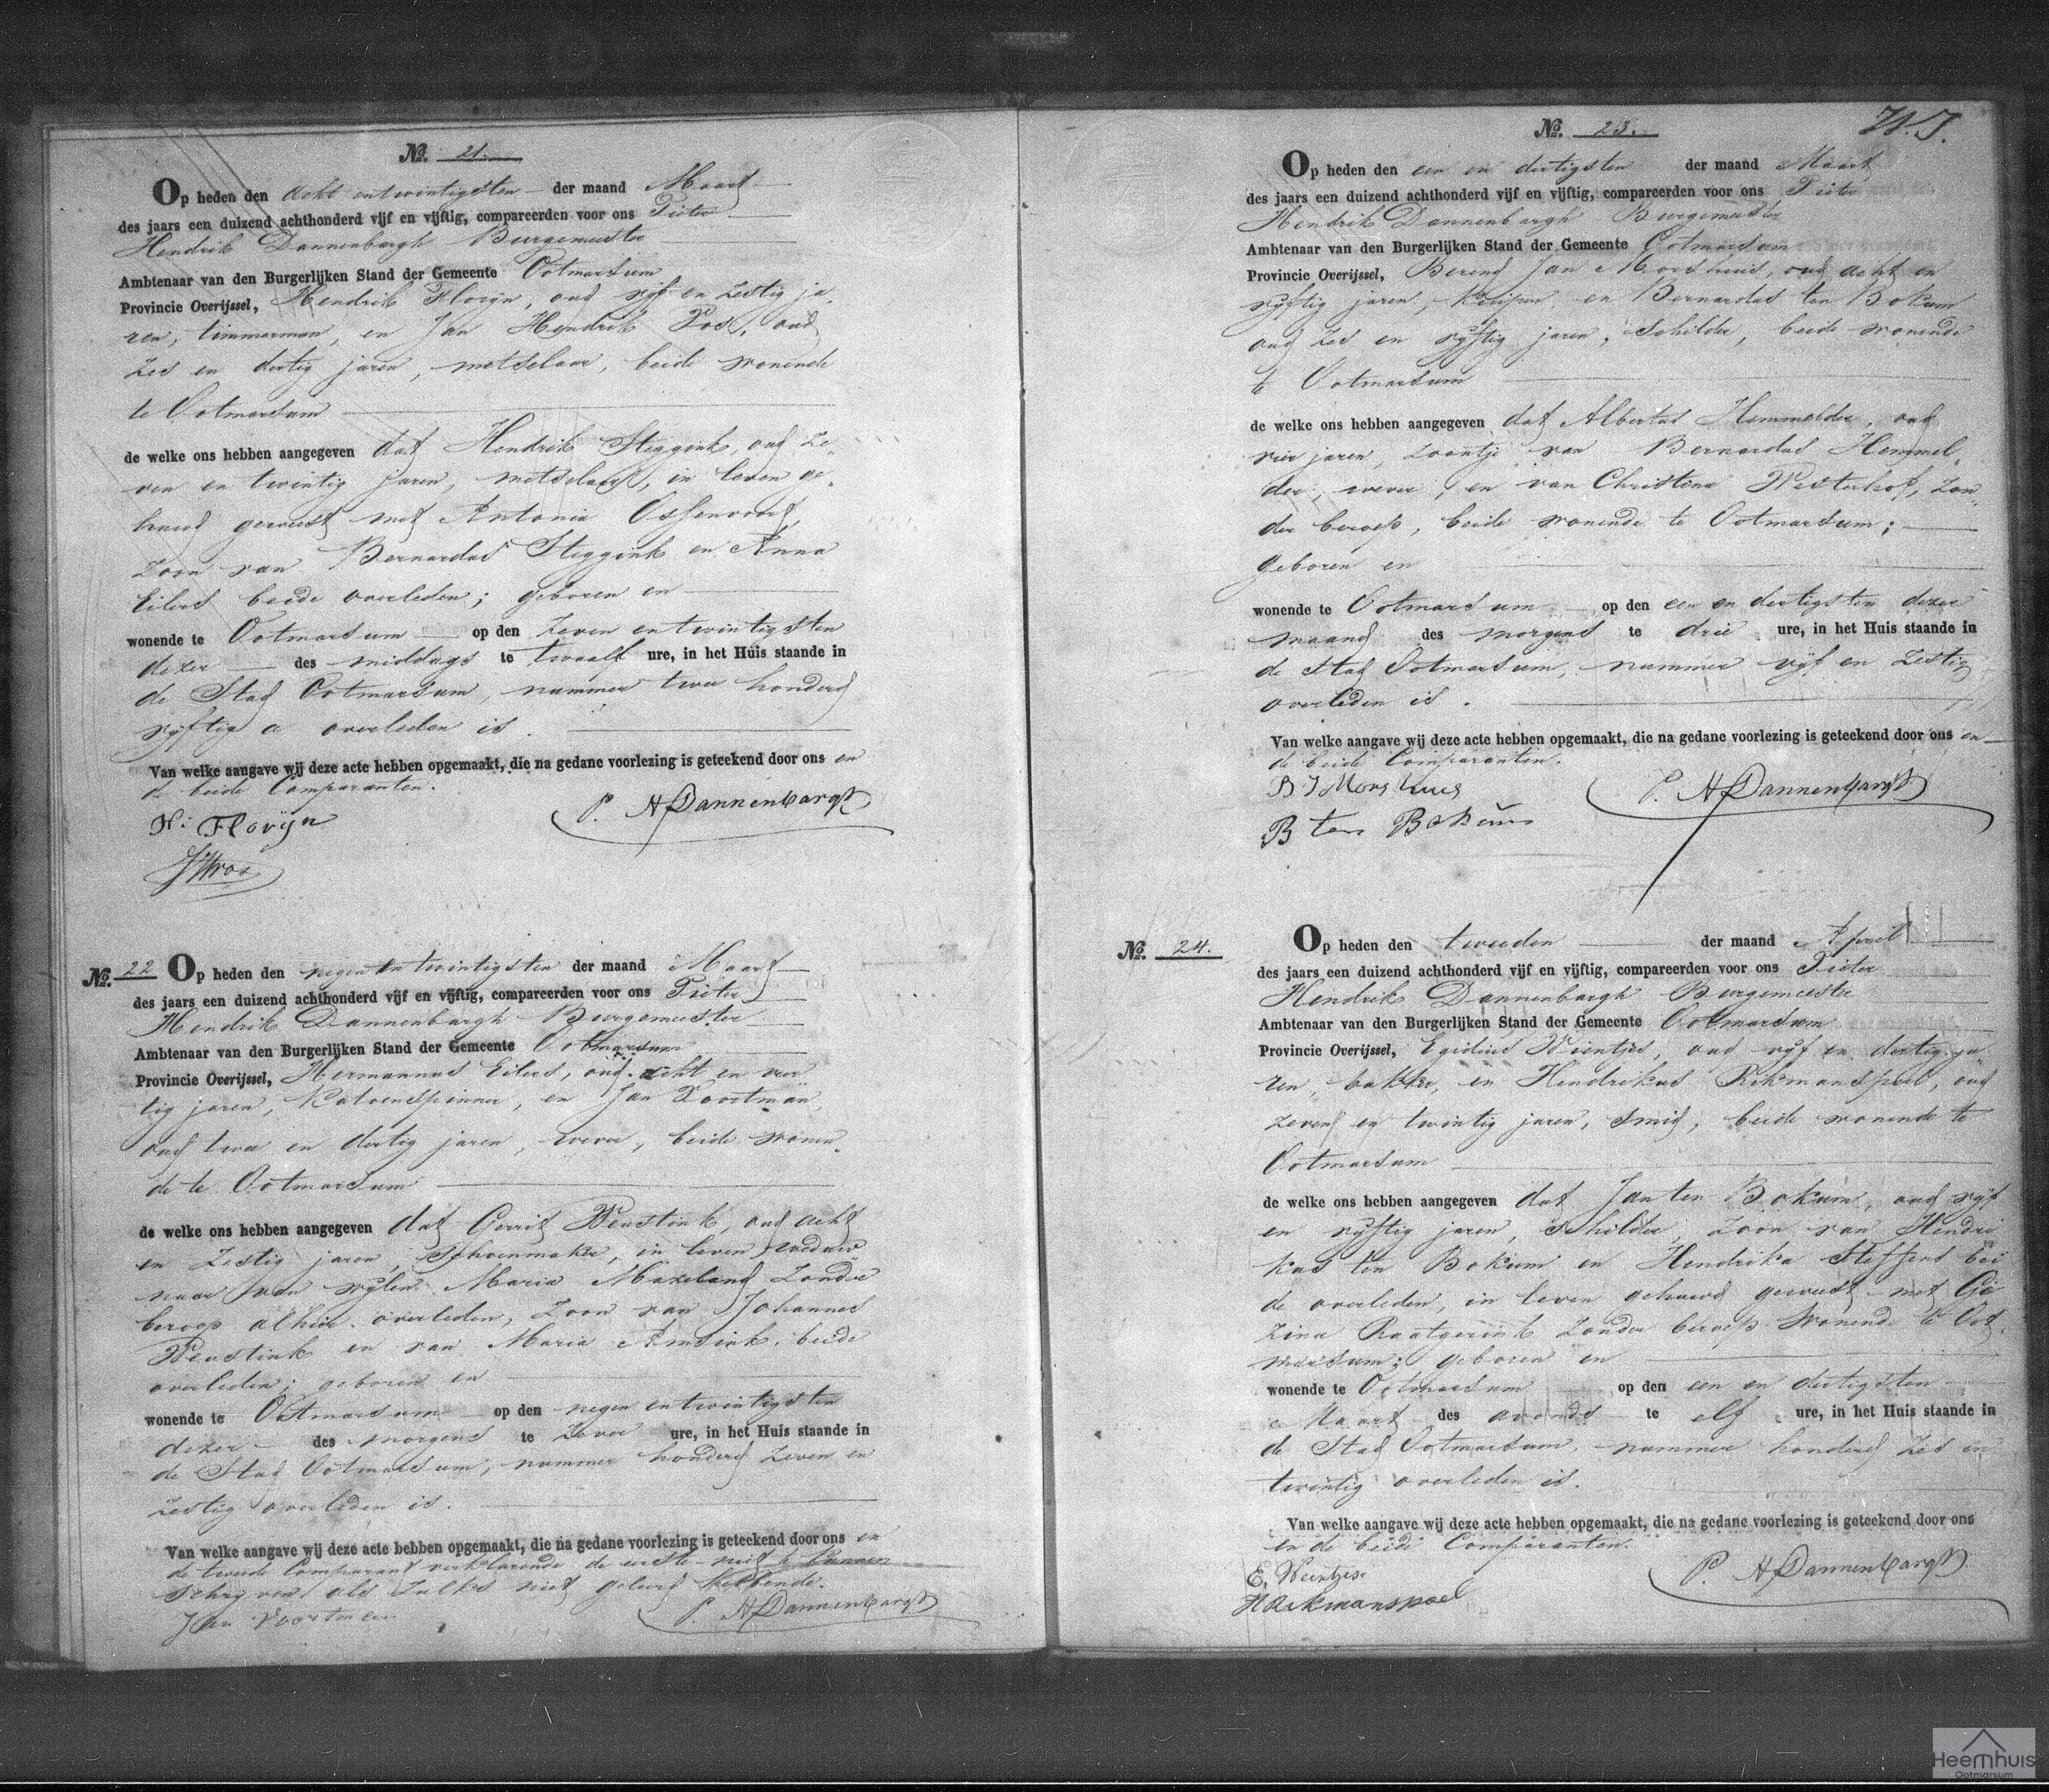 No. 21.
Op heden den acht entwintigsten der maand Maart
des jaars een duizend achthonderd vijf en vijftig, compareerden voor ons Pieter
Hendrik Dannenbargh Burgemeester
Ambtenaar van den Burgerlijken Stand der Gemeente Ootmarsum
Provincie Overijssel, Hendrik Florijn, oud vijf en zestig ja
ren, timmerman, en Jan Hendrik Vos, oud
zes en dertig jaren, metselaar, beide wonende
te Ootmarsum
de welke ons hebben aangegeven dat Hendrik Steggink, oud ze,
ven en twintig jaren, metselaar, in leven ge,
huwd geweest met Antonia Ossenvoort,
zoon van Bernardus Steggink en Anna
Eilers beide overleden; geboren en
wonende te Ootmarsum op den zeven entwintigsten
dezer des middags te twaalf ure, in het Huis staande in
de Stad Ootmarsum, nummer twee honderd
vijftig a overleden is.
Van welke aangave wij deze acte hebben opgemaakt, die na gedane voorlezing is geteekend door ons en
de beide Comparanten.
H: Florijn
P. H Dannenbargh
JHVos
No. 22
Op heden den negen en twintigsten der maand Maart
des jaars een duizend achthonderd vijf en vijftig, compareerden voor ons Pieter
Hendrik Dannenbargh Burgemeester
Ambtenaar van den Burgerlijken Stand der Gemeente Ootmarsum
Provincie Overijssel, Hermannus Eilers, oud acht en veer
tig jaren, Katoenspinner, en Jan Voortman,
oud twee en dertig jaren, wever, beide wonen,
de te Ootmarsum
de welke ons hebben aangegeven dat Gerrit Weustink, oud acht
en zestig jaren, Schoenmaker, in leven weduw
naar van wijlen Maria Mazeland zonder
beroep alhier overleden, zoon van Johannes
Weustink en van Maria Amsink, beide
overleden; geboren en
wonende te Ootmarsum op den negen entwintigsten
dezer des morgens te zeven ure, in het Huis staande in
de Stad Ootmarsum, nummer honderd zeven en
zestig overleden is.
Van welke aangave wij deze acte hebben opgemaakt, die na gedane voorlezing is geteekend door ons en
de tweede Comparant verklarende de eerste niet te kunnen
schrijven als zulks niet geleerd hebbende.
Jan Voortman
P. H Dannenbargh
No. 23.
Op heden den een en dertigsten der maand Maart
des jaars een duizend achthonderd vijf en vijftig, compareerden voor ons Pieter
Hendrik Dannenbargh Burgemeester
Ambtenaar van den Burgerlijken Stand der Gemeente Ootmarsum
Provincie Overijssel, Berend Jan Morshuis, oud acht en
vijftig jaren, Kuiper en Bernardus ten Bokum
oud zes en vijftig jaren, Schilder, beide wonende
te Ootmarsum
de welke ons hebben aangegeven dat Albertus Hemmelder, oud
vier jaren, zoontje van Bernardus Hemmel,
der, wever, en van Christina Westerhof, zon,
der beroep, beide wonende te Ootmarsum;
geboren en
wonende te Ootmarsum op den een en dertigsten dezer
maand des morgens te drie ure, in het Huis staande in
de Stad Ootmarsum, nummer vijf en zestig
overleden is.
Van welke aangave wij deze acte hebben opgemaakt, die na gedane voorlezing is geteekend door ons en
de beide Comparanten.
B J Morshuis
P. H Dannenbargh
B ten Bokum
No. 24.
Op heden den tweeden der maand April
des jaars een duizend achthonderd vijf en vijftig, compareerden voor ons Pieter
Hendrik Dannenbargh Burgemeester
Ambtenaar van den Burgerlijken Stand der Gemeente Ootmarsum
Provincie Overijssel, Egidius Weintjes, oud vijf en dertig ja,
ren, bakker, en Hendrikus Rikmanspoel, oud
zeven en twintig jaren, smid, beide wonende te
Ootmarsum
de welke ons hebben aangegeven dat Jan ten Bokum, oud vijf
en vijftig jaren, schilder, zoon van Hendri
kus ten Bokum en Hendrika Steffens bei
de overleden, in leven gehuwd geweest met Ge
zina Raatgerink zonder beroep wonende te Oot,
marsum; geboren en
wonende te Ootmarsum op den een en dertigsten
Maart des avonds te elf ure, in het Huis staande in
de Stad Ootmarsum, nummer honderd zes en
twintig overleden is.
Van welke aangave wij deze acte hebben opgemaakt, die na gedane voorlezing is geteekend door ons
en de beide Comparanten.
E. Weintjes
P. H Dannenbargh
H Rikmanspoel
Heemhuis
Ootmarsum